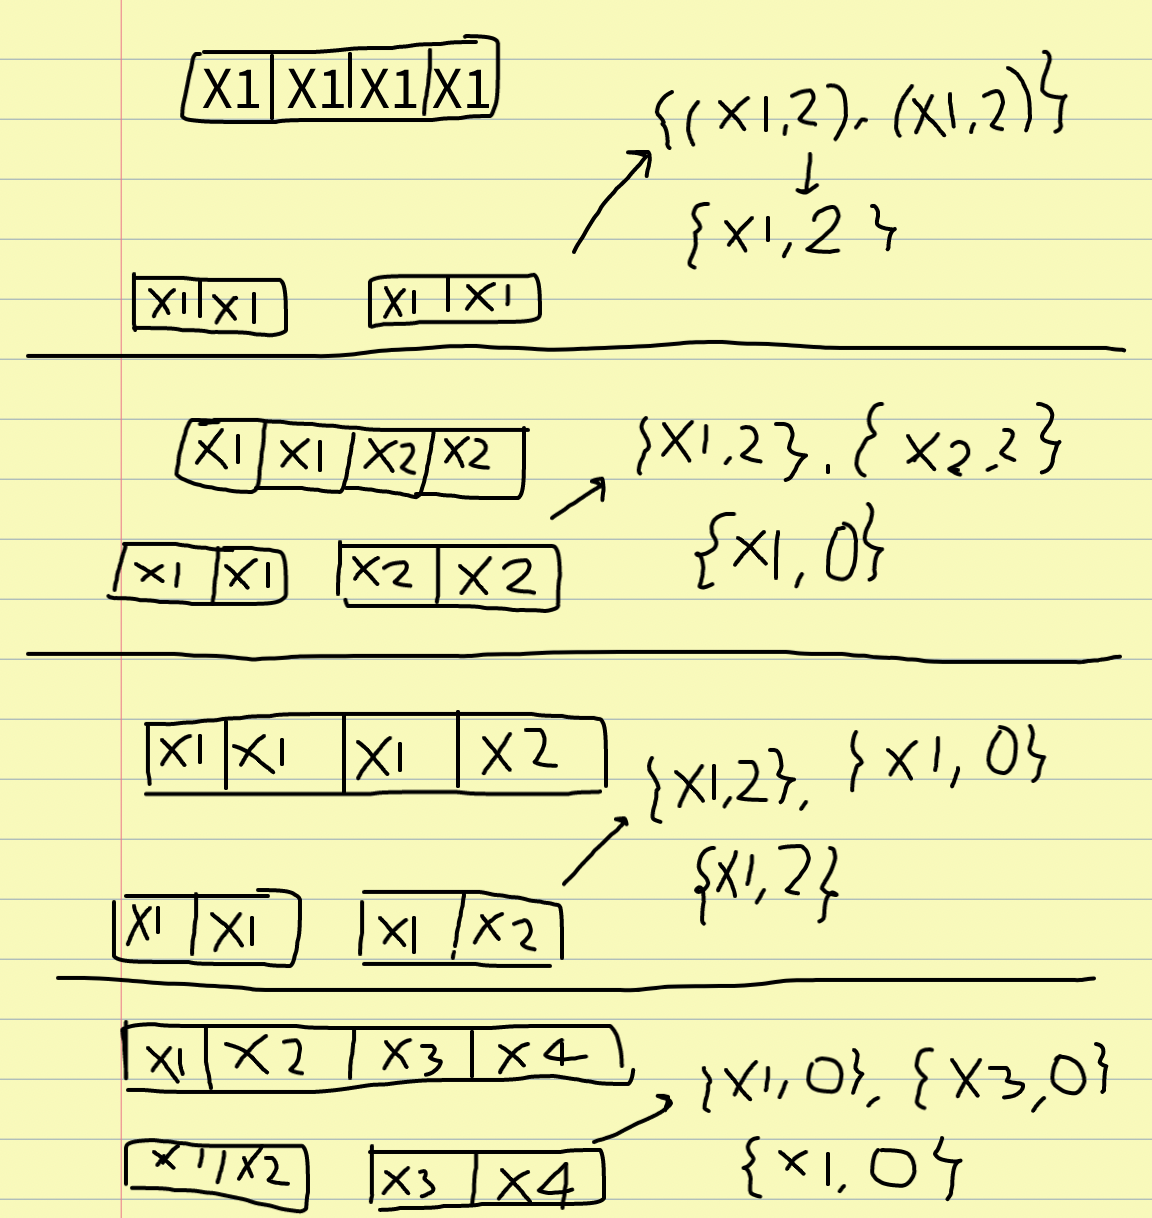 X1 X1 X1 X1
{(X1,2), (X1,2)}
↓
{X1,2}
X1 X1 X1 X1
X1 X1 X2 X2
}X1,2}, {X2,2}
{X1,0}
X1 X1 X2 X2
X1 X1 X1 X2
{X1,2}, }X1,0}
{X1,2}
X1 X1 X1 X2
X1 X2 X3 X4
}X1,0}, {X3,0}
X1 X2 X3 X4
{X1,0}